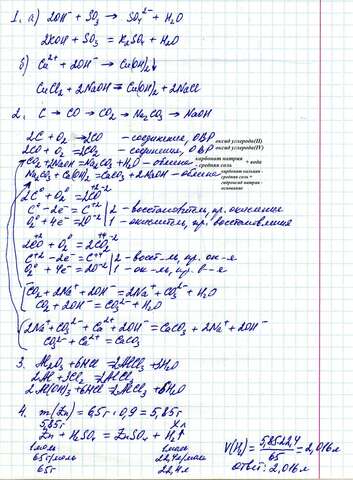 1. а) 2OH⁻ + SO₃ → SO₄²⁻ + H₂O
2KOH + SO₃ = K₂SO₄ + H₂O
б) Cu²⁺ + 2OH⁻ → Cu(OH)₂↓
CuCl₂ + 2NaOH = Cu(OH)₂ + 2NaCl
2. C → CO → CO₂ → Na₂CO₃ → NaOH
2C + O₂ = 2CO - соединения, ОВР оксид углерода(II)
2CO + O₂ = 2CO₂ - соединения, ОВР оксид углерода(IV)
CO₂ + 2NaOH = Na₂CO₃ + H₂O - обмена карбонат натрия - средняя соль + вода
Na₂CO₃ + Ca(OH)₂ = CaCO₃ + 2NaOH - обмена карбонат кальция - средняя соль + гидроксид натрия - основание
2C⁰ + O₂⁰ = 2C⁺²O⁻²
C⁰ - 2e⁻ = C⁺² | 2 - восстановитель, пр. окисления
O₂⁰ + 4e⁻ = 2O⁻² | 1 - окислитель, пр. восстановления
2CO + O₂⁰ = 2CO₂⁻²
C⁺² - 2e⁻ = C⁺⁴ | 2 - восст-ль, пр. ок-я
O₂⁰ + 4e⁻ = 2O⁻² | 1 - ок-ль, пр. в-я
CO₂ + 2Na⁺ + 2OH⁻ = 2Na⁺ + CO₃²⁻ + H₂O
CO₂ + 2OH⁻ = CO₃²⁻ + H₂O
2Na⁺ + CO₃²⁻ + Ca²⁺ + 2OH⁻ = CaCO₃ + 2Na⁺ + 2OH⁻
CO₃²⁻ + Ca²⁺ = CaCO₃
3. Al₂O₃ + 6HCl = 2AlCl₃ + 3H₂O
2Al + 3Cl₂ = 2AlCl₃
2Al(OH)₃ + 6HCl = 2AlCl₃ + 6H₂O
4. m(Zn) = 6,5г · 0,9 = 5,85г
5,85г X л
Zn + H₂SO₄ = ZnSO₄ + H₂↑
1моль 1моль
65г/моль 22,4л/моль
65г 22,4л
V(H₂) = 5,85·22,4 / 65 = 2,016л
Ответ: 2,016л